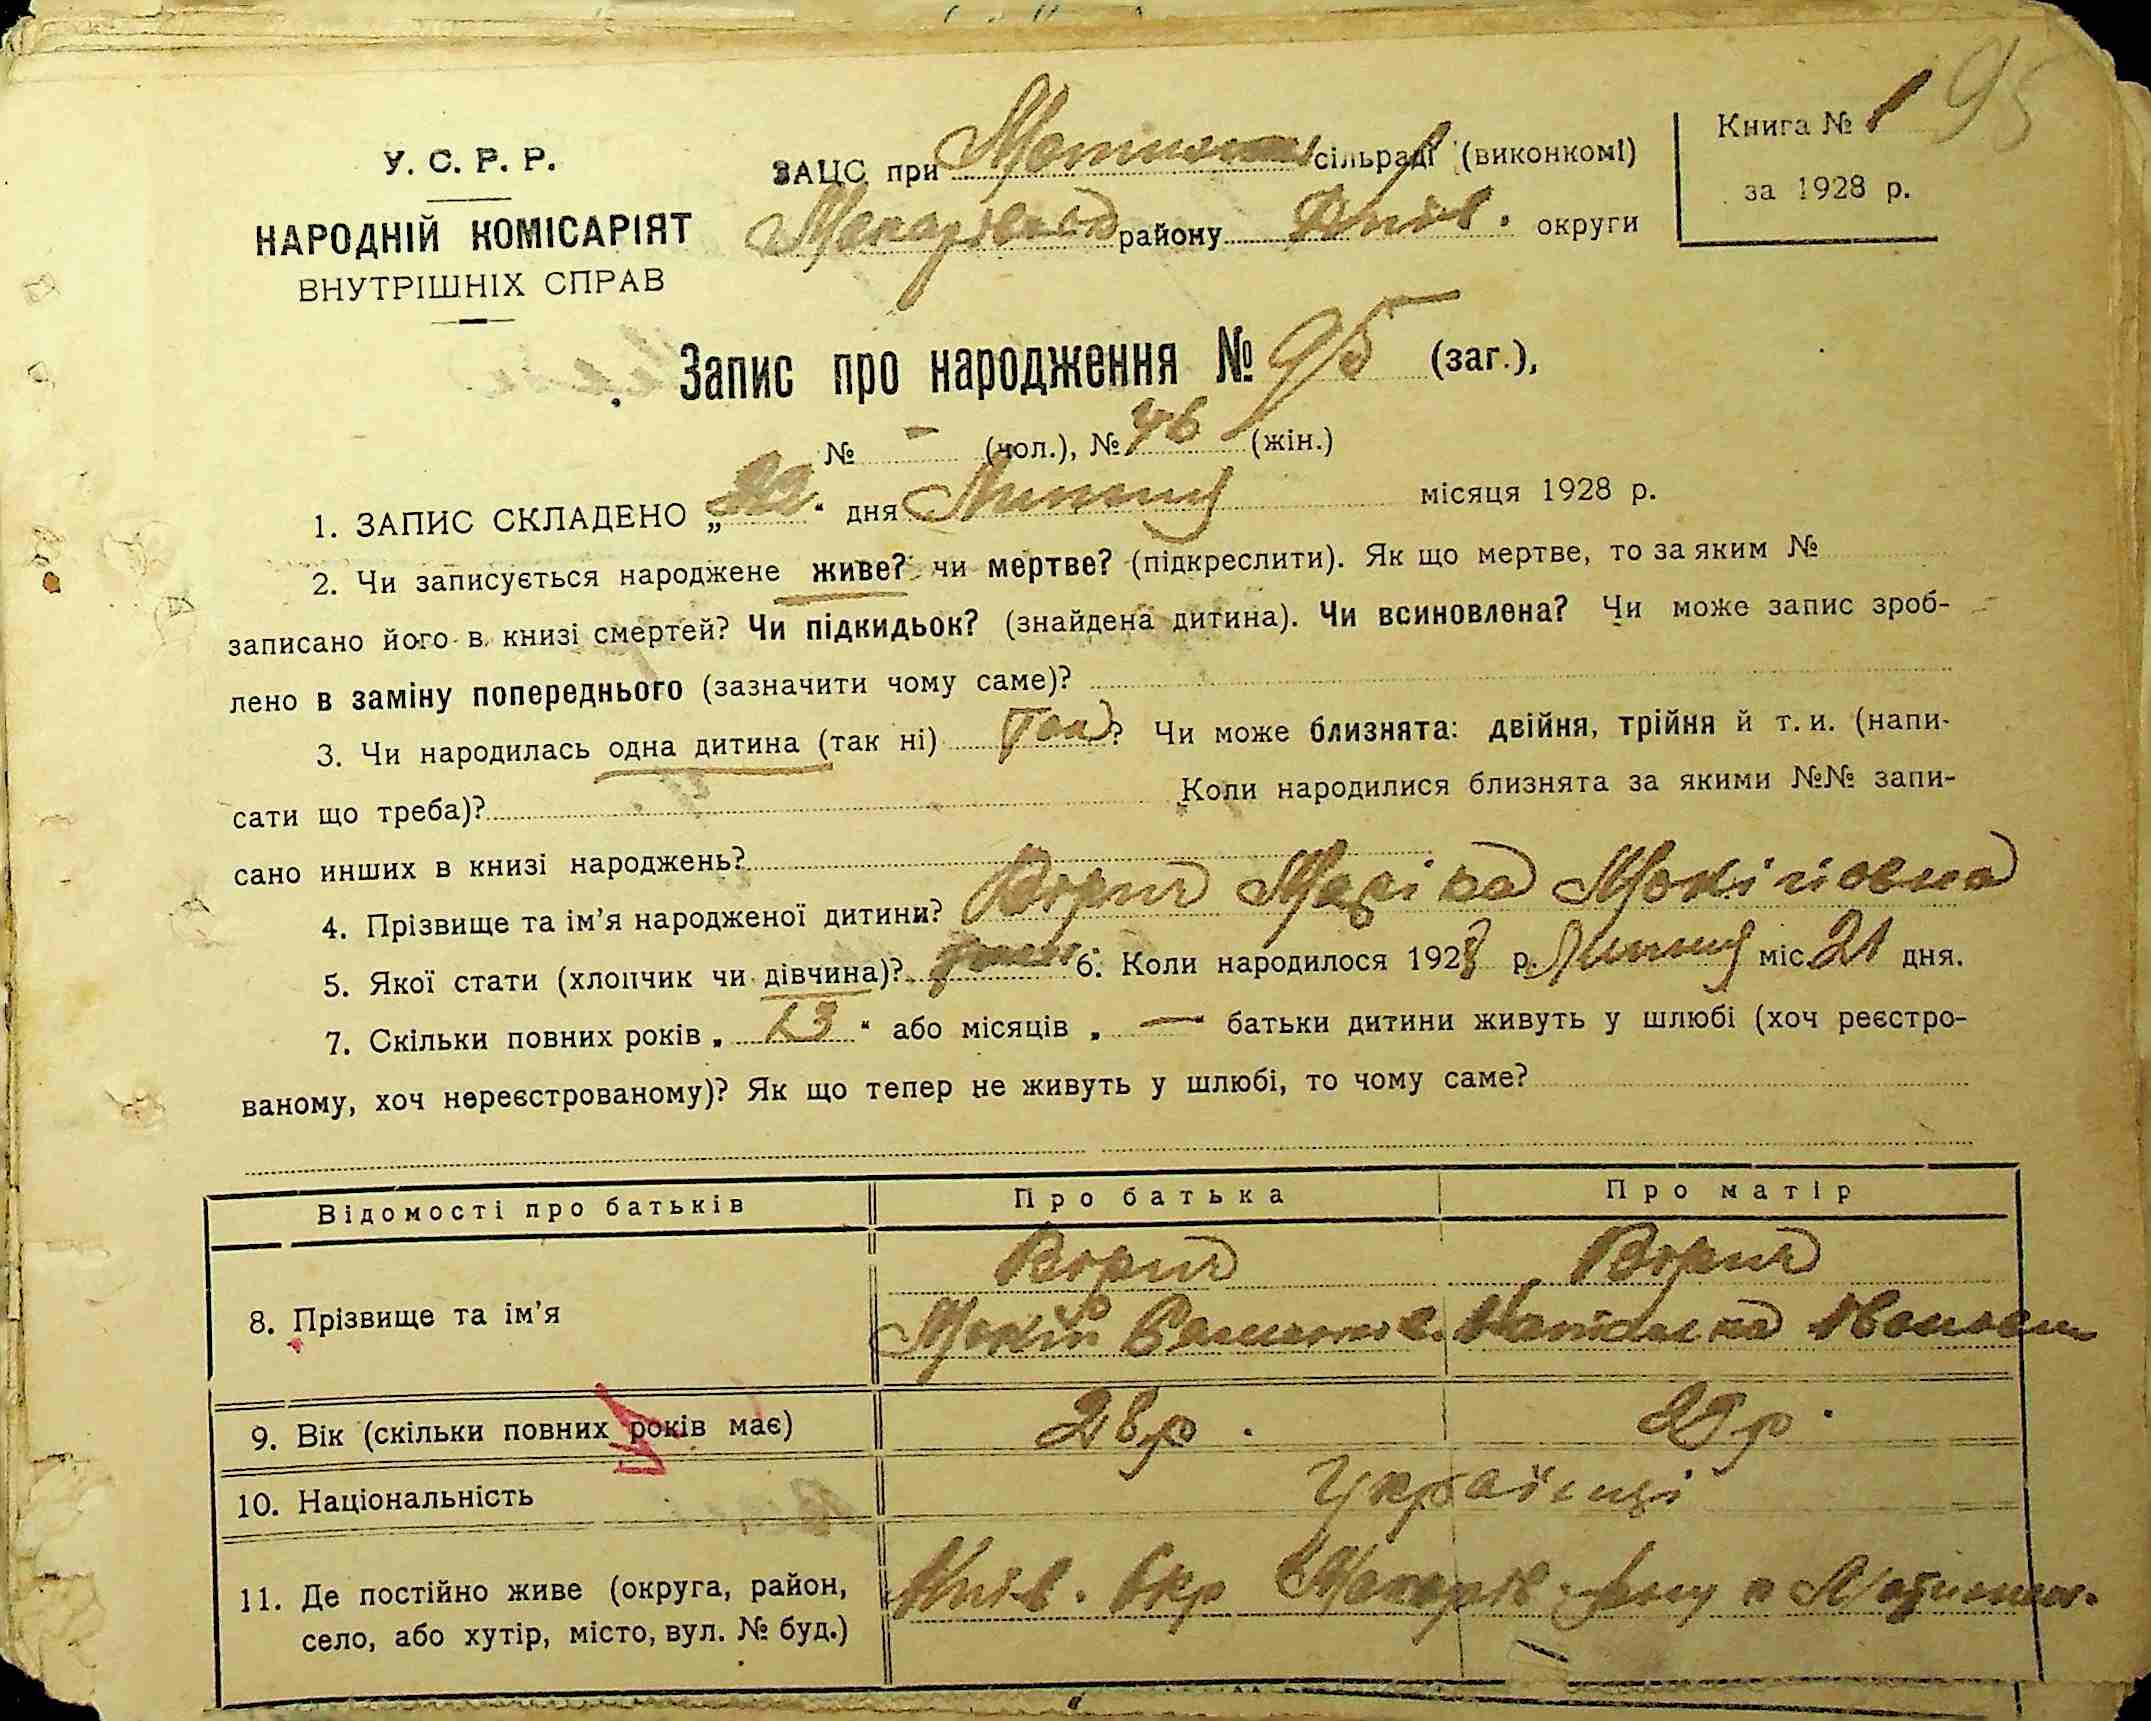 95
Книга № 1
за 1928 р.
У. С. Р. Р.
НАРОДНІЙ КОМІСАРІЯТ
ВНУТРІШНІХ СПРАВ
ЗАЦС при сільраді (виконкомі)
району Київ. округи
Запис про народження № 95 (заг.),
№ - (чол.), № 46 (жін.)
1. ЗАПИС СКЛАДЕНО „22" дня Липня місяця 1928 р.
2. Чи записується народжене живе? чи мертве? (підкреслити). Як що мертве, то за яким №
записано його в книзі смертей? Чи підкидьок? (знайдена дитина). Чи всиновлена? Чи може запис зроб-
лено в заміну попереднього (зазначити чому саме)?
3. Чи народилась одна дитина (так ні) Так? Чи може близнята: двійня, трійня й т. и. (напи-
сати що треба)? Коли народилися близнята за якими №№ запи-
сано инших в книзі народжень?
4. Прізвище та ім'я народженої дитини? Ворич Мокіівна
5. Якої стати (хлопчик чи дівчина)? 6. Коли народилося 1928 р. Липня міс. 21 дня.
7. Скільки повних років „ 13 " або місяців „ — батьки дитини живуть у шлюбі (хоч реєстро-
ваному, хоч нереєстрованому)? Як що тепер не живуть у шлюбі, то чому саме?
Відомості про батьків Про батька Про матір
8. Прізвище та ім'я Ворич Ворич
Мокій
9. Вік (скільки повних років має) 28 р. 29 р.
10. Національність Українці
11. Де постійно живе (округа, район,
село, або хутір, місто, вул. № буд.)
Київ. Окр Макарів.